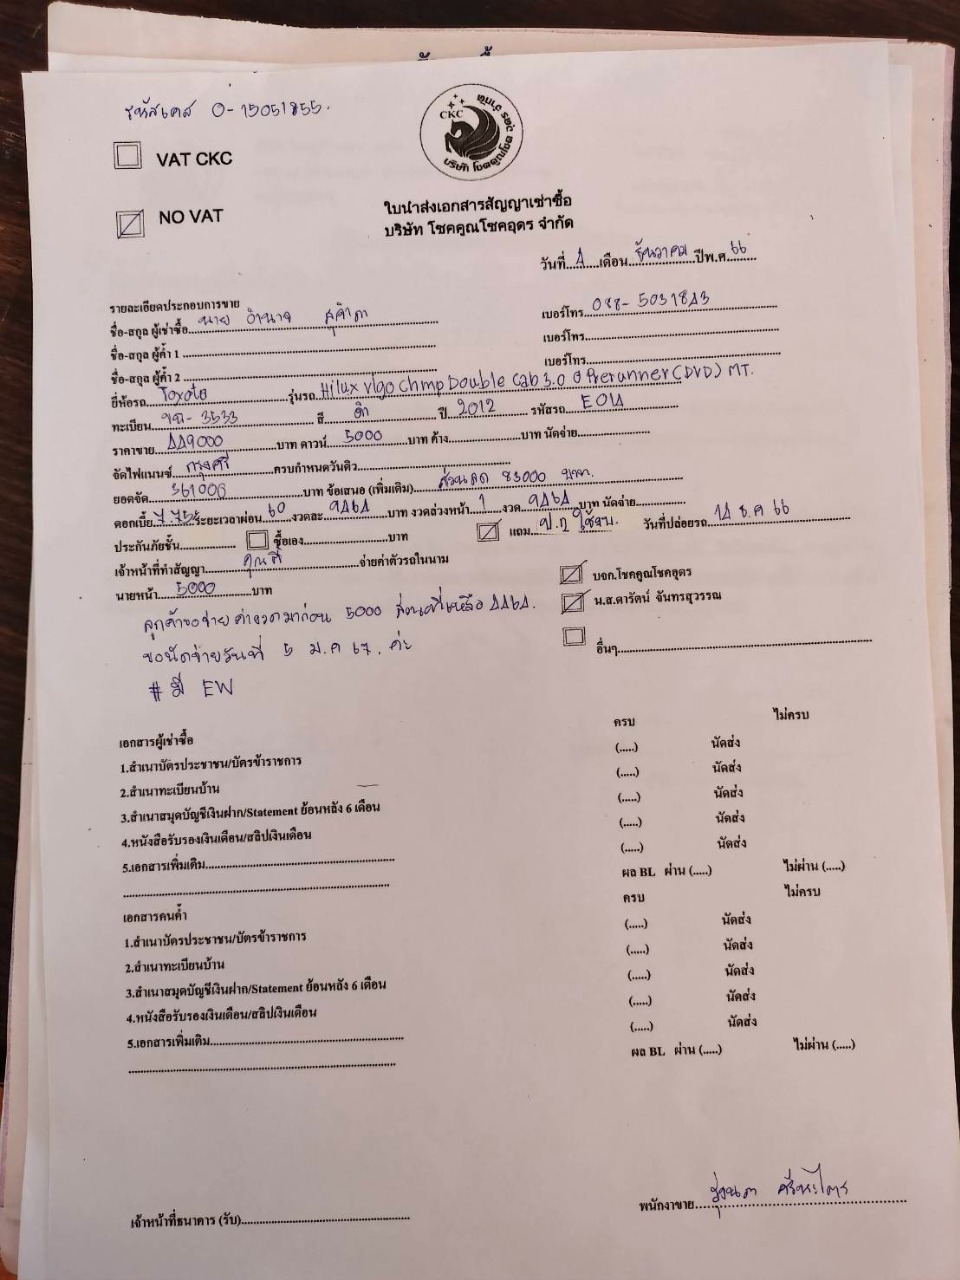 รหัสเคส 0-15051855.
CKC
บริษัท โชคคูณโชคอุดร จำกัด
VAT CKC
NO VAT
ใบนำส่งเอกสารสัญญาเช่าซื้อ
บริษัท โชคคูณโชคอุดร จำกัด
วันที่..4....เดือน..ธันวาคม..ปีพ.ศ..66....
รายละเอียดประกอบการขาย
ชื่อ-สกุล ผู้เช่าซื้อ..นาย อำนาจ.............. เบอร์โทร..088-5031843
ชื่อ-สกุล ผู้ค้ำ 1 .............. เบอร์โทร..............
ชื่อ-สกุล ผู้ค้ำ 2 .............. เบอร์โทร..............
ยี่ห้อรถ..Toyota..............รุ่นรถ..Hilux Vigo Chmp Double Cab 3.0 G Prerunner (DVD) MT.
ทะเบียน.. - 3533.......... สี....ดำ.......... ปี..2012...... รหัสรถ..E014
ราคาขาย..449000..........บาท ดาวน์..5000......บาท ค้าง..............บาท นัดจ่าย..............
จัดไฟแนนซ์..กรุงศรี..........ครบกำหนดวันดิว..............
ยอดจัด....361000..............บาท ข้อเสนอ (เพิ่มเติม)....ส่วนลด 83000 บาท.
ดอกเบี้ย..7.75%..ระยะเวลาผ่อน..60..งวดละ..9464......บาท งวดล่วงหน้า..1..งวด..9464..บาท นัดจ่าย..............
ประกันภัยชั้น.............. ซื้อเอง..............บาท แถม.......... วันที่ปล่อยรถ..14 ธ.ค 66
เจ้าหน้าที่ทำสัญญา..............จ่ายค่าตัวรถในนาม
นายหน้า....5000..........บาท บจก.โชคคูณโชคอุดร
น.ส.ดารัตน์ จันทรสุวรรณ
ลูกค้าขอจ่ายค่างวดมาก่อน 5000 ส่วนที่เหลือ 4464.
ขอนัดจ่ายวันที่ 5 ม.ค 67. ค่ะ
อื่นๆ..............
# มี EW
ครบ ไม่ครบ
เอกสารผู้เช่าซื้อ (.....) นัดส่ง
1.สำเนาบัตรประชาชน/บัตรข้าราชการ (.....) นัดส่ง
2.สำเนาทะเบียนบ้าน (.....) นัดส่ง
3.สำเนาสมุดบัญชีเงินฝาก/Statement ย้อนหลัง 6 เดือน (.....) นัดส่ง
4.หนังสือรับรองเงินเดือน/สลิปเงินเดือน (.....) นัดส่ง
5.เอกสารเพิ่มเติม.............. ผล BL ผ่าน (.....) ไม่ผ่าน (.....)
ครบ ไม่ครบ
เอกสารคนค้ำ (.....) นัดส่ง
1.สำเนาบัตรประชาชน/บัตรข้าราชการ (.....) นัดส่ง
2.สำเนาทะเบียนบ้าน (.....) นัดส่ง
3.สำเนาสมุดบัญชีเงินฝาก/Statement ย้อนหลัง 6 เดือน (.....) นัดส่ง
4.หนังสือรับรองเงินเดือน/สลิปเงินเดือน (.....) นัดส่ง
5.เอกสารเพิ่มเติม.............. ผล BL ผ่าน (.....) ไม่ผ่าน (.....)
เจ้าหน้าที่ธนาคาร (รับ).............. พนักงาขาย..............